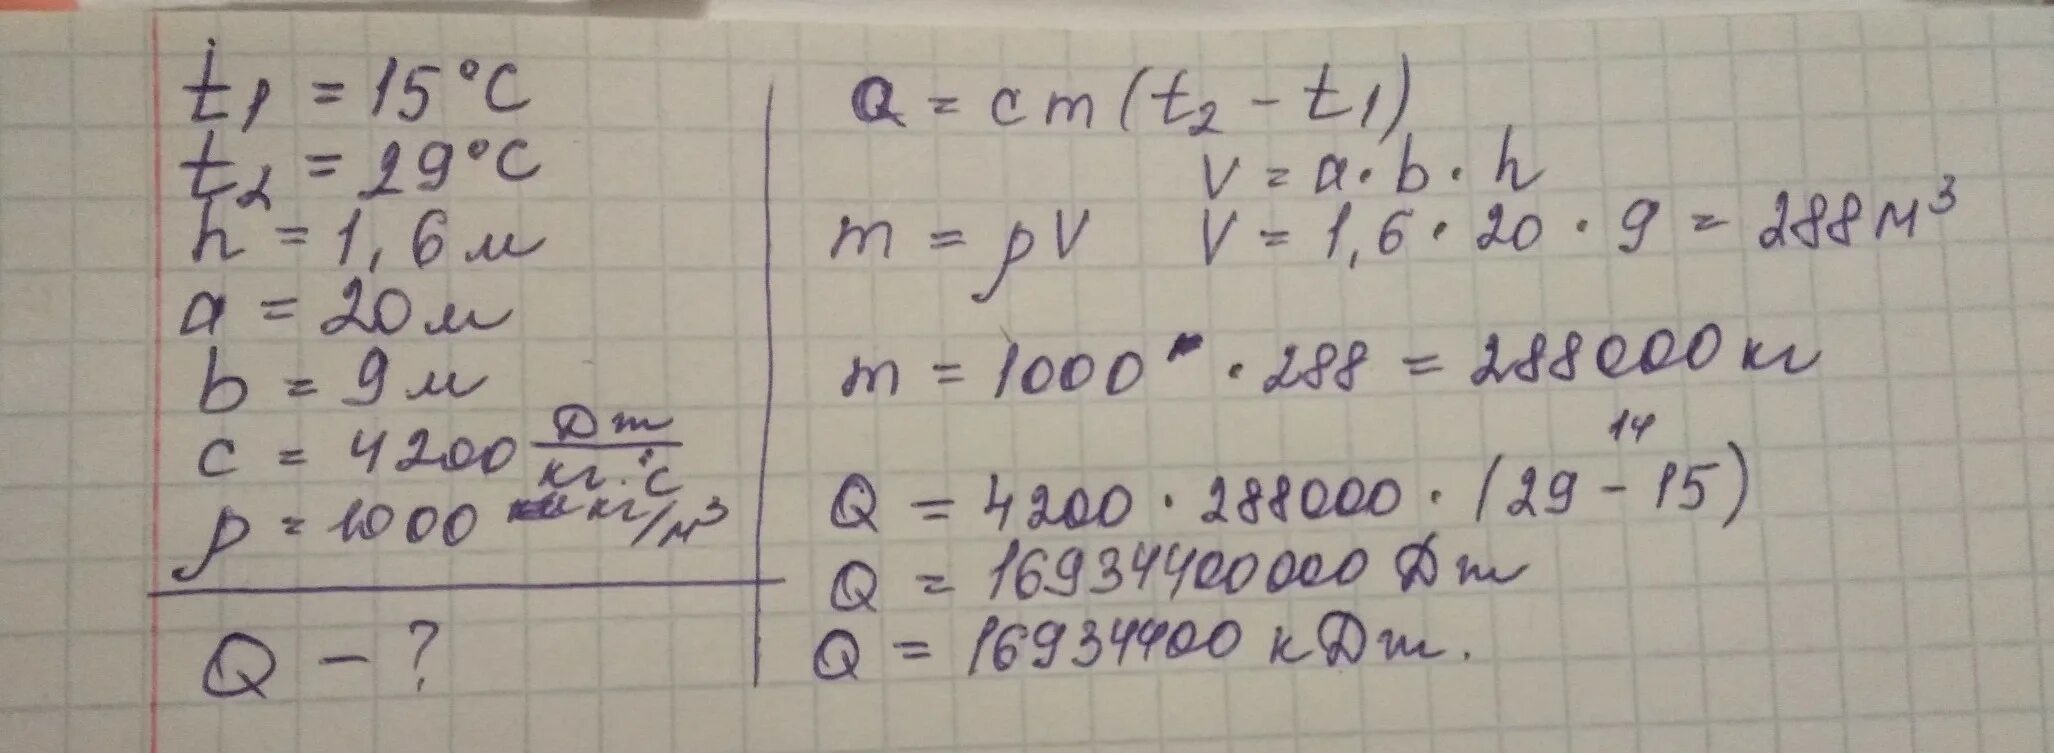 t₁ = 15°C
t₂ = 29°C
h = 1,6 м
a = 20 м
b = 9 м
c = 4200 Дж/кг·°C
ρ = 1000 кг/м³
Q – ?
Q = cm(t₂ – t₁)
V = a·b·h
m = ρV V = 1,6·20·9 = 288 м³
m = 1000 · 288 = 288000 кг
14
Q = 4200 · 288000 · (29 – 15)
Q = 16934400000 Дж
Q = 16934400 кДж.